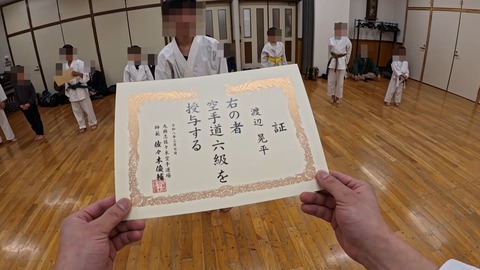 証
渡辺 晃平
右の者
空手道 六級を
授与する
師範 佐々木俊輔